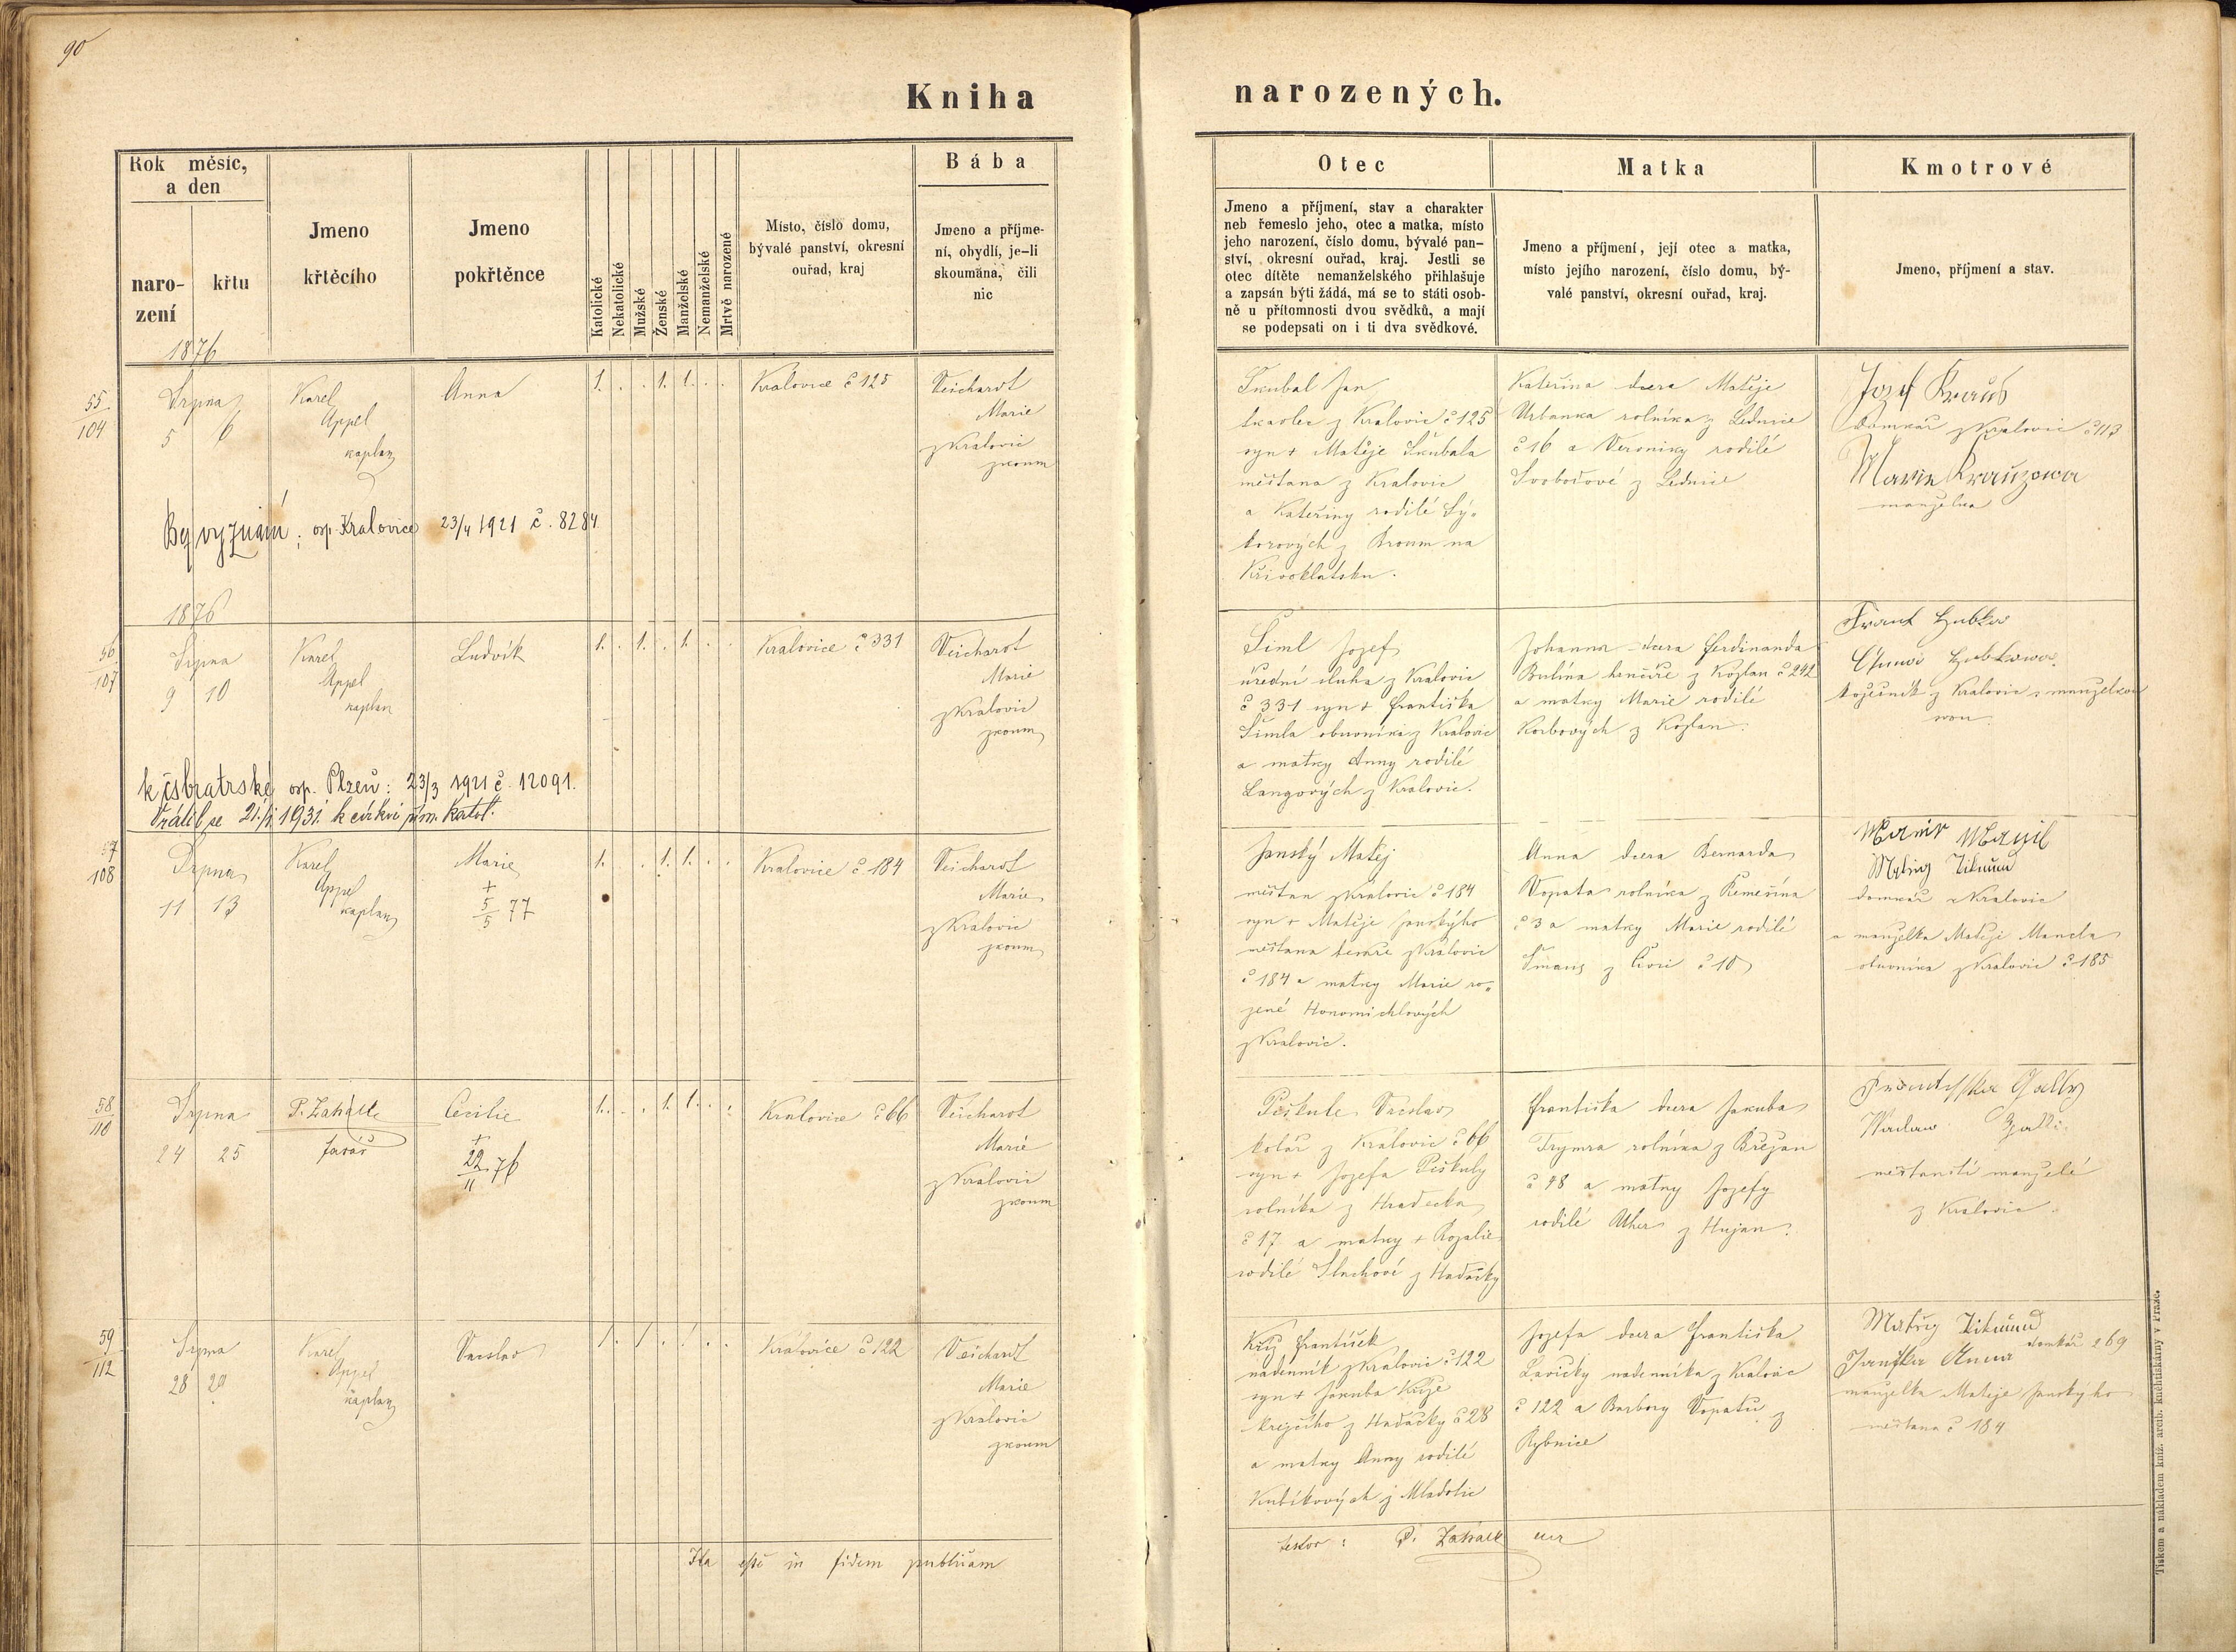 90
Kniha narozených.
Rok měsíc, a den
narození
křtu
Jmeno křtěcího
Jmeno pokřtěnce
Katolické
Nekatolické
Mužské
Ženské
Manželské
Nemanželské
Mrtvě narozené
Místo, číslo domu,
bývalé panství, okresní
ouřad, kraj
Bába
Jmeno a příjme-
ní, obydlí, je-li
skoumána, čili
nic
Otec
Jmeno a příjmení, stav a charakter
neb řemeslo jeho, otec a matka, místo
jeho narození, číslo domu, bývalé pan-
ství, okresní ouřad, kraj. Jestli se
otec dítěte nemanželského přihlašuje
a zapsán býti žádá, má se to státi osob-
ně u přítomnosti dvou svědků, a mají
se podepsati on i ti dva svědkové.
Matka
Jmeno a příjmení, její otec a matka,
místo jejího narození, číslo domu, bý-
valé panství, okresní ouřad, kraj.
Kmotrové
Jmeno, příjmení a stav.
1876
55
104
Srpna
5 6
Karel
Appel
kaplan
Anna
1. . . 1. 1. . .
Kralovice č 125
Veichardt
Marie
z Kralovic
zkoum
Bez vyznání; osp. Kralovice 23/4 1921 č. 8284
Škubal Jan
tkadlec z Kralovic č 125
syn + Matěje Škubala
měštana z Kralovic
a Kateřiny rodilé Sý-
korových z Broum na
Křivoklatsku.
Kateřina dcera Matěje
Urbanka rolníka z Lednice
č 16 a Veroniky rodilé
Svobodové z Lednice
Jozef Kraus
domkář z Kralovic č 113
Marie Krauzowa
manzelka
1876
56
107
Srpna
9 10
Karel
Appel
kaplan
Ludvík
1. . 1. . 1. . .
Kralovice č 331
Veichardt
Marie
z Kralovic
zkoum
k čsbratrské osp. Plzeň: 23/3 1921 č. 12091.
Vrátil se 21./1. 1931. k církvi řím. katol.
Šiml Jozef
úřední sluha z Kralovic
č 331 syn + Františka
Šimla obuvníka z Kralovic
a matky Anny rodilé
Langových z Kralovic.
Johanna dcera Ferdinanda
Bulína hrnčíře z Kožlan č 242
a matky Marie rodilé
Korbových z Kožlan.
Frant Hubka
Hubkowa
kožešník z Kralovic s manzelkou
svou
57
108
Srpna
11 13
Karel
Appel
kaplan
Marie
+
5
5 77
1. . . 1. 1. . .
Kralovice č 184
Veichardt
Marie
z Kralovic
zkoum
Janský Matěj
měštan z Kralovic č 184
syn + Matěje Janskýho
měštana z Kralovic
č 184 a matky Marie ro-
zené Honomichlových
z Kralovic.
Anna dcera Bernarda
Vopata rolníka z Řemešína
č 3 a matky Marie rodilé
Šmaus z č 10
Matieg Zikmund
domkář z Kralovic
a manzelka Matěje Mancla
obuvníka z Kralovic č 185
58
110
Srpna
24 25
P. Zahálk
farář
Cecilie
+
22
11 76
1. . . 1. 1. . .
Kralovice č 66
Veichardt
Marie
z Kralovic
zkoum
Piškule Václav
kolář z Kralovic č 66
syn + Jozefa Piškuly
rolníka z Hradecka
č 17 a matky + Rozalie
rodilé Sluchové z Hadačky
Františka dcera Jakuba
Trymra rolníka z Břežan
č 48 a matky Jozefy
rodilé Uher z Hujan.
Frantisska Galli
Waclaw Galli
měštanstí manzelé
z Kralovic.
59
112
Srpna
28 29
Karel
Appel
kaplan
Vacslav
1. . 1. . 1. . .
Kralovice č 122
Veichardt
Marie
z Kralovic
zkoum
Kříž František
nadenník z Kralovic č 122
syn + Jakuba Kříže
krejčího z Hadačky č 28
a matky Anny rodilé
Kubíkových z Mladotic
Jozefa dcera Františka
Lavičky nadenníka z Kralovic
č 122 a Barbory Vopatů z
Rybnice
Matieg Zikmund
domkář 269
Janska Anna
manzelka Matěje Janskýho
měštana č 184
Ita esse in fidem publicam
testor: P. Zahálk
Tiskem a nákladem kníž. arcib. knihtiskárny v Praze.